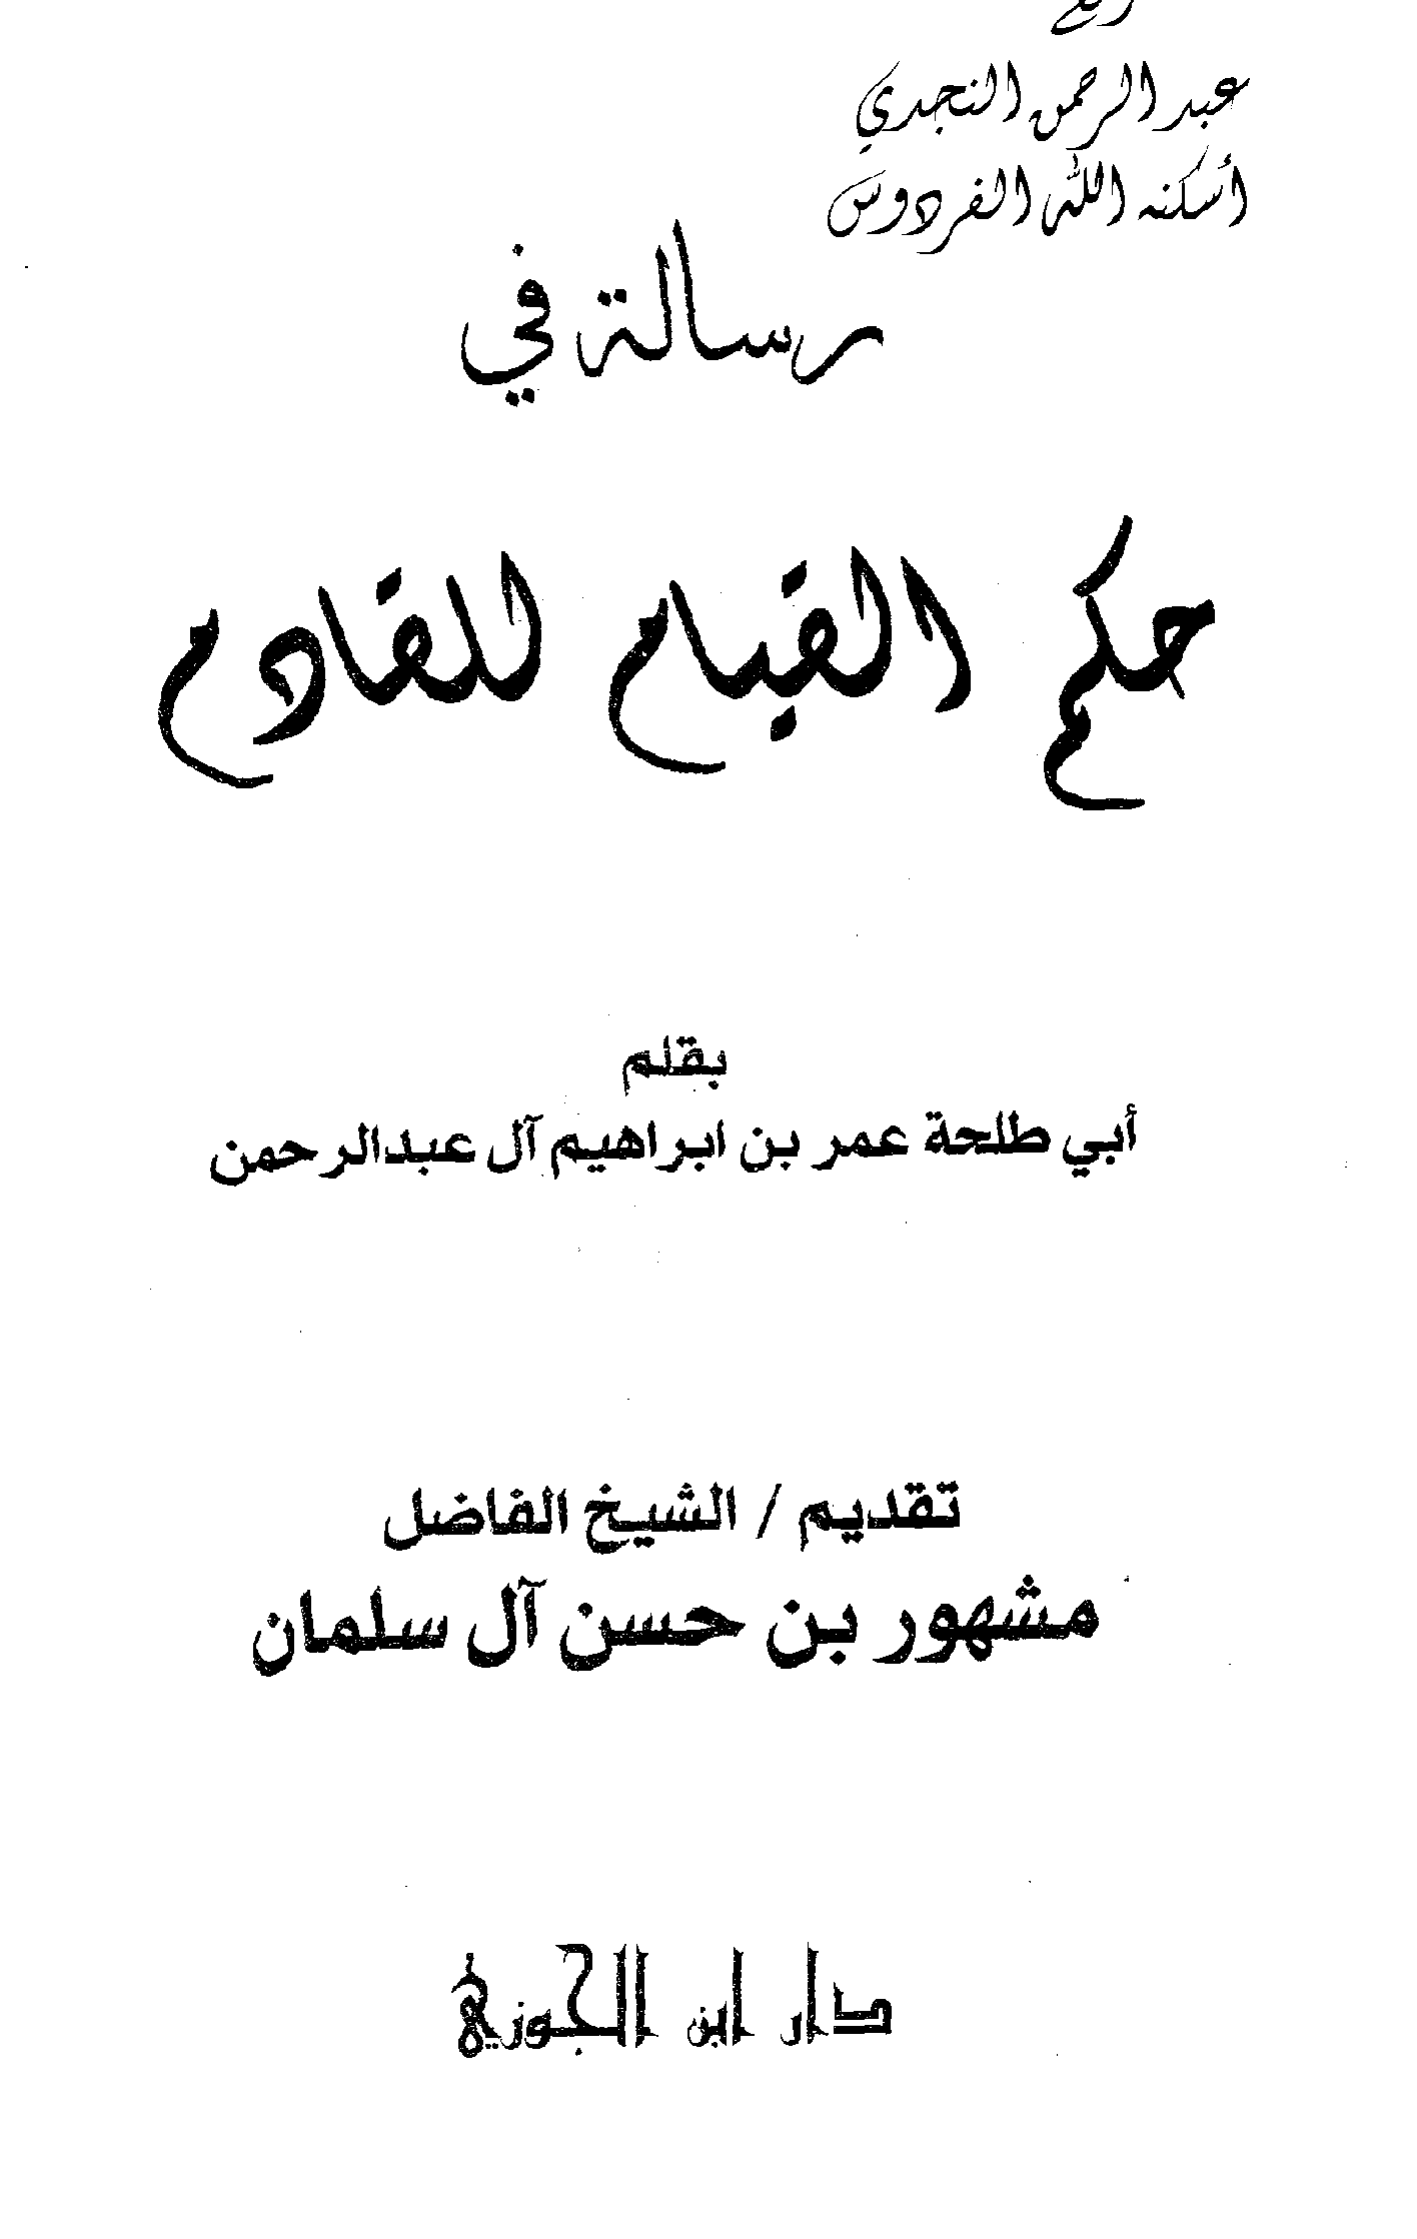 عبد الرحمن النجدي
أسكنه الله الفردوس
رسالة في
حكم القيام للقادم
بقلم
أبي طلحة عمر بن ابراهيم آل عبدالرحمن
تقديم / الشيخ الفاضل
مشهور بن حسن آل سلمان
دار ابن الجوزي